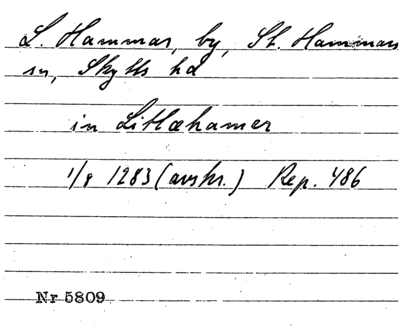 L. Hammar, by, St. Hammars
sn, Skytts hd
in Litlæhamer
1/8 1283 (avskr.) Rep. 486
Nr 5809